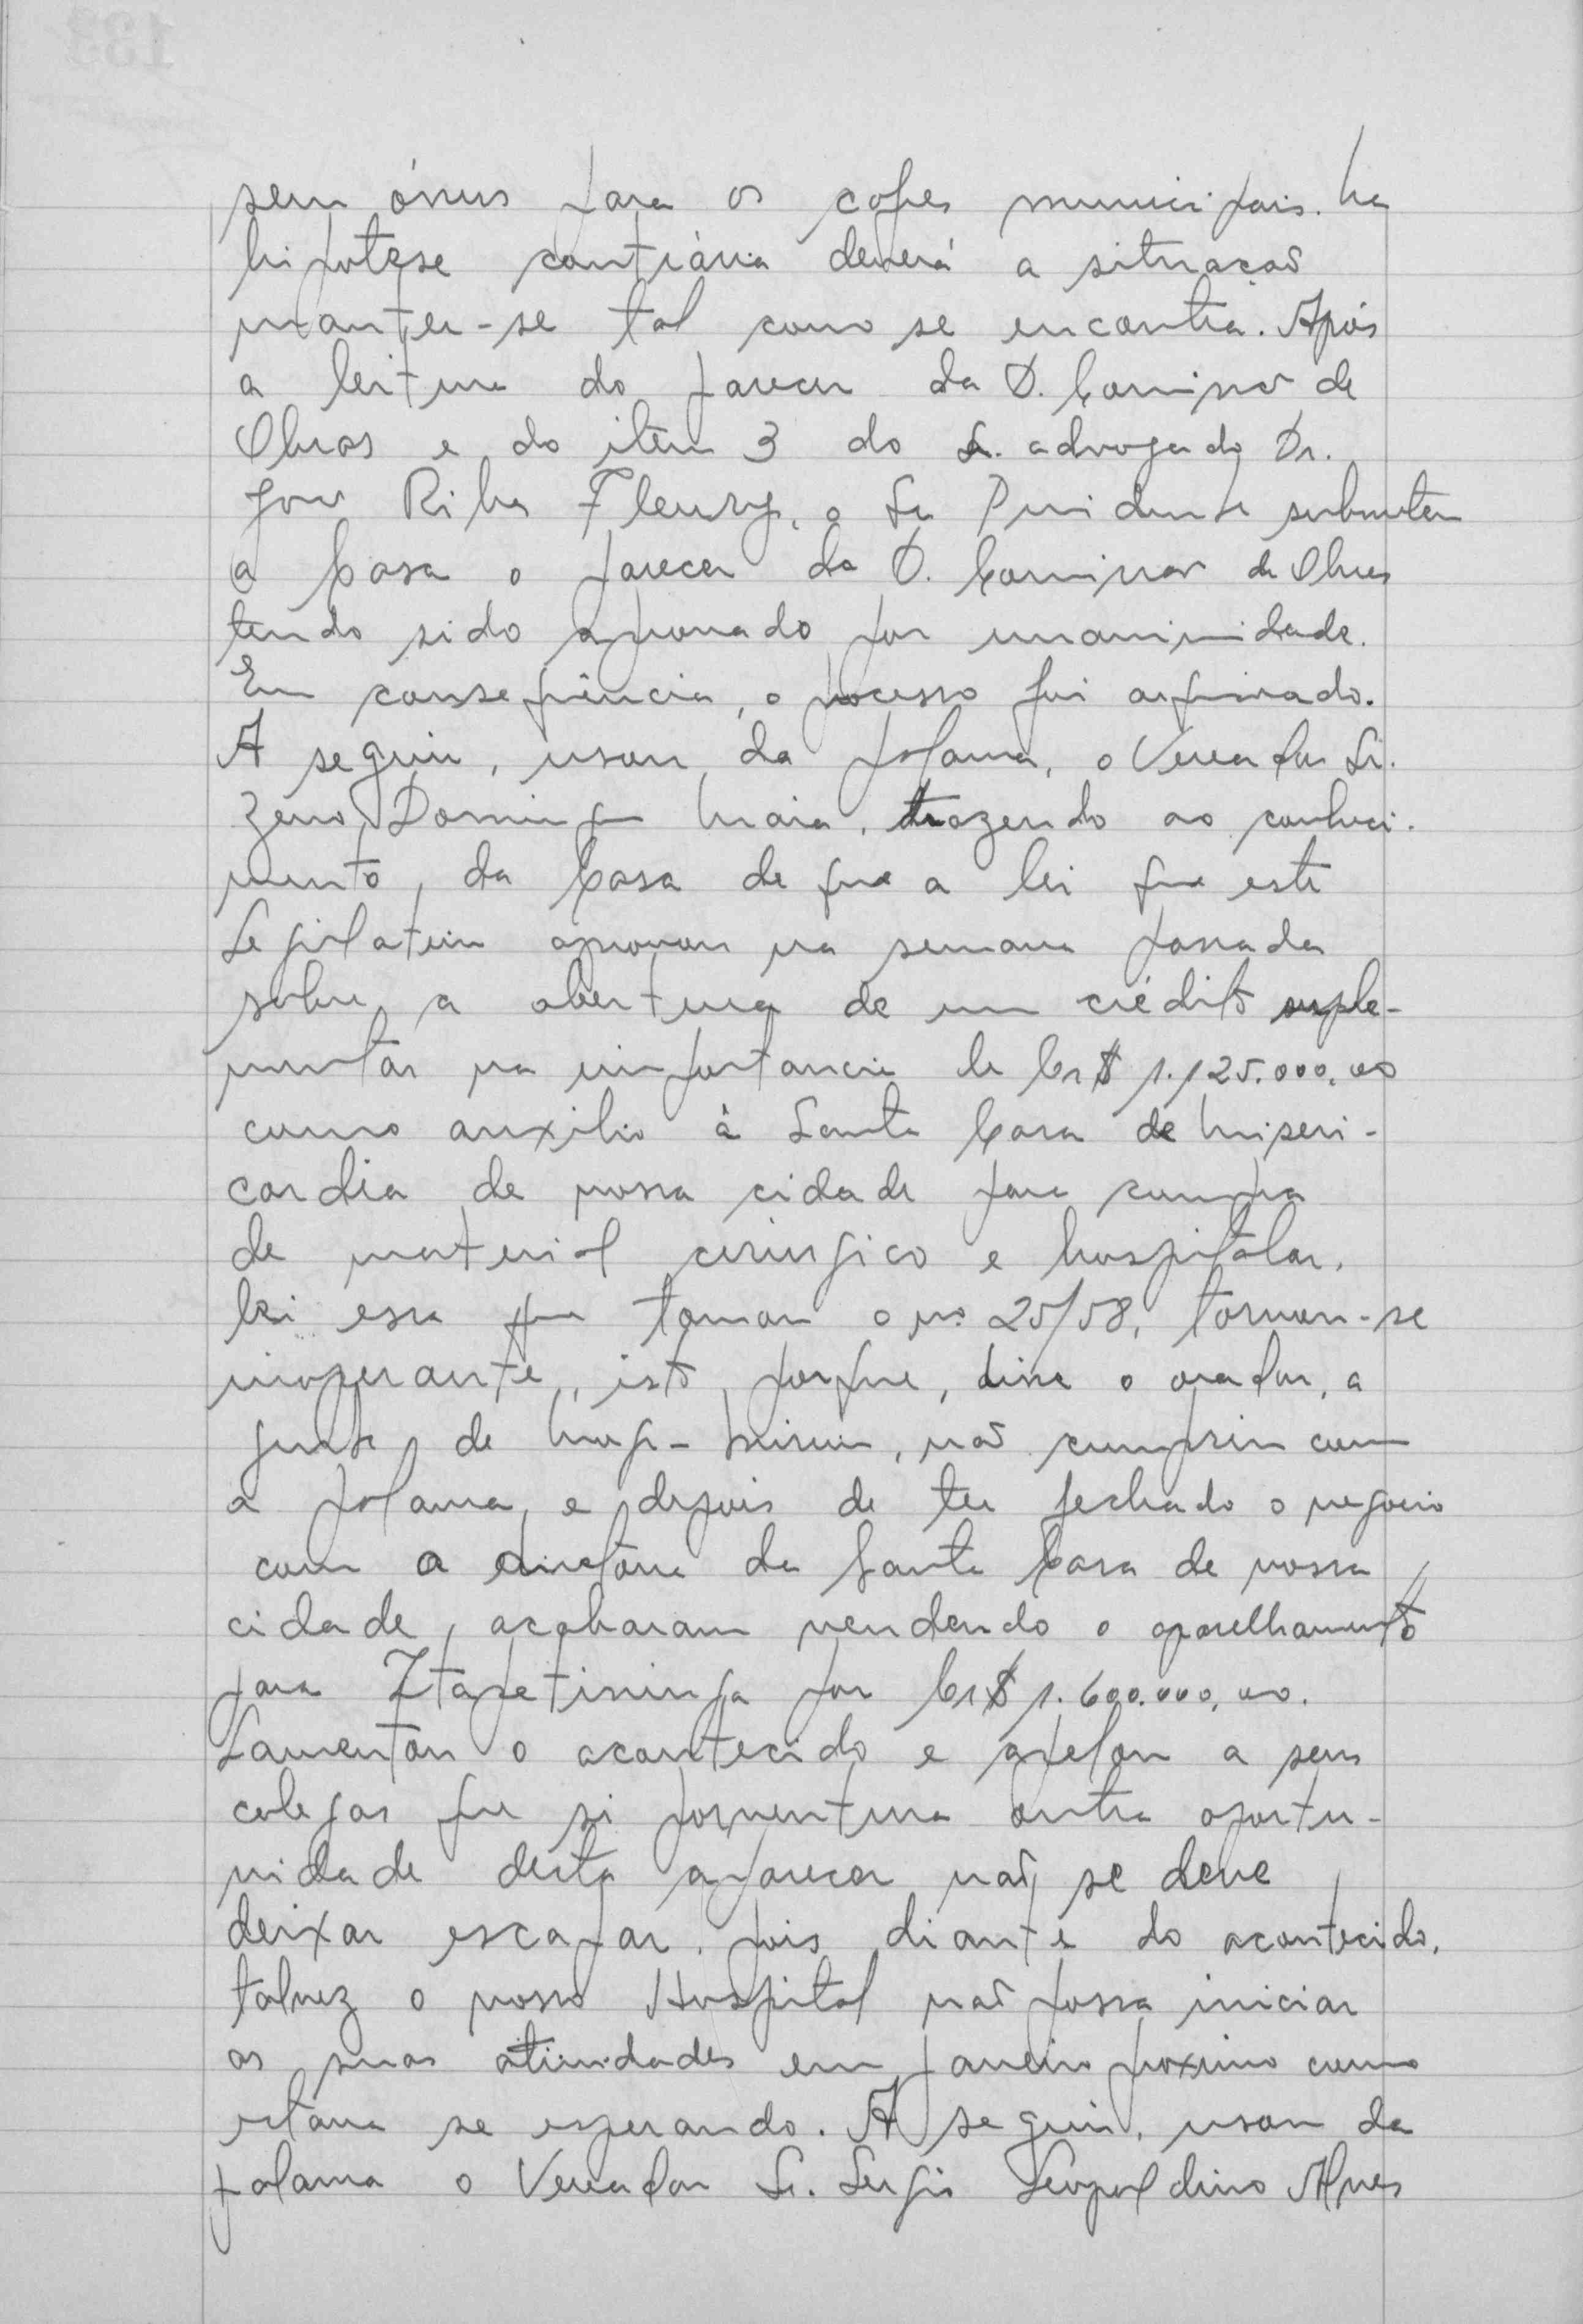 sem ônus para os cofres municipais. Na
hipotese contrária deverá a situação
manter-se tal como se encontra. Após
a leitura do parecer da D. Comissão de
Obras e do item 3 do Sr. advogado Dr.
José Ribas Fleury, o Sr Presidente submeteu
a Casa o parecer da D. Comissão de Obras
tendo sido aprovado por unanimidade.
Em consequência, o processo foi arquivado.
A seguir, usou da palavra, o Vereador Sr.
Zeno Domingues Maia, trazendo ao conheci-
mento, da Casa de que a lei que este
Legislativo aprovou na semana passada
sobre a abertura de um crédito suple-
mentar na importancia de Cr$ 1.125.000,00
como auxilio à Santa Casa de Miseri-
cordia de nossa cidade para compra
de material cirurgico e hospitalar,
lei essa que tomou o nº 25/58, tornou-se
inoperante, isto porque, disse o orador, a
gente de Mogi-Mirim, não cumpriu com
a palavra, e depois de ter fechado o negocio
com a diretoria da Santa Casa de nossa
cidade, acabaram vendendo o aparelhamento
para Itapetininga por Cr$ 1.600.000,00.
Lamentou o acontecido e apelou a seus
colegas que si porventura outra oportu-
nidade desta aparecer não se deve
deixar escapar, pois diante do acontecido,
talvez o nosso Hospital não possa iniciar
as suas atividades em janeiro proximo como
estava se esperando. A seguir, usou da
palavra o Vereador Sr. Sergio Leopoldino Alves